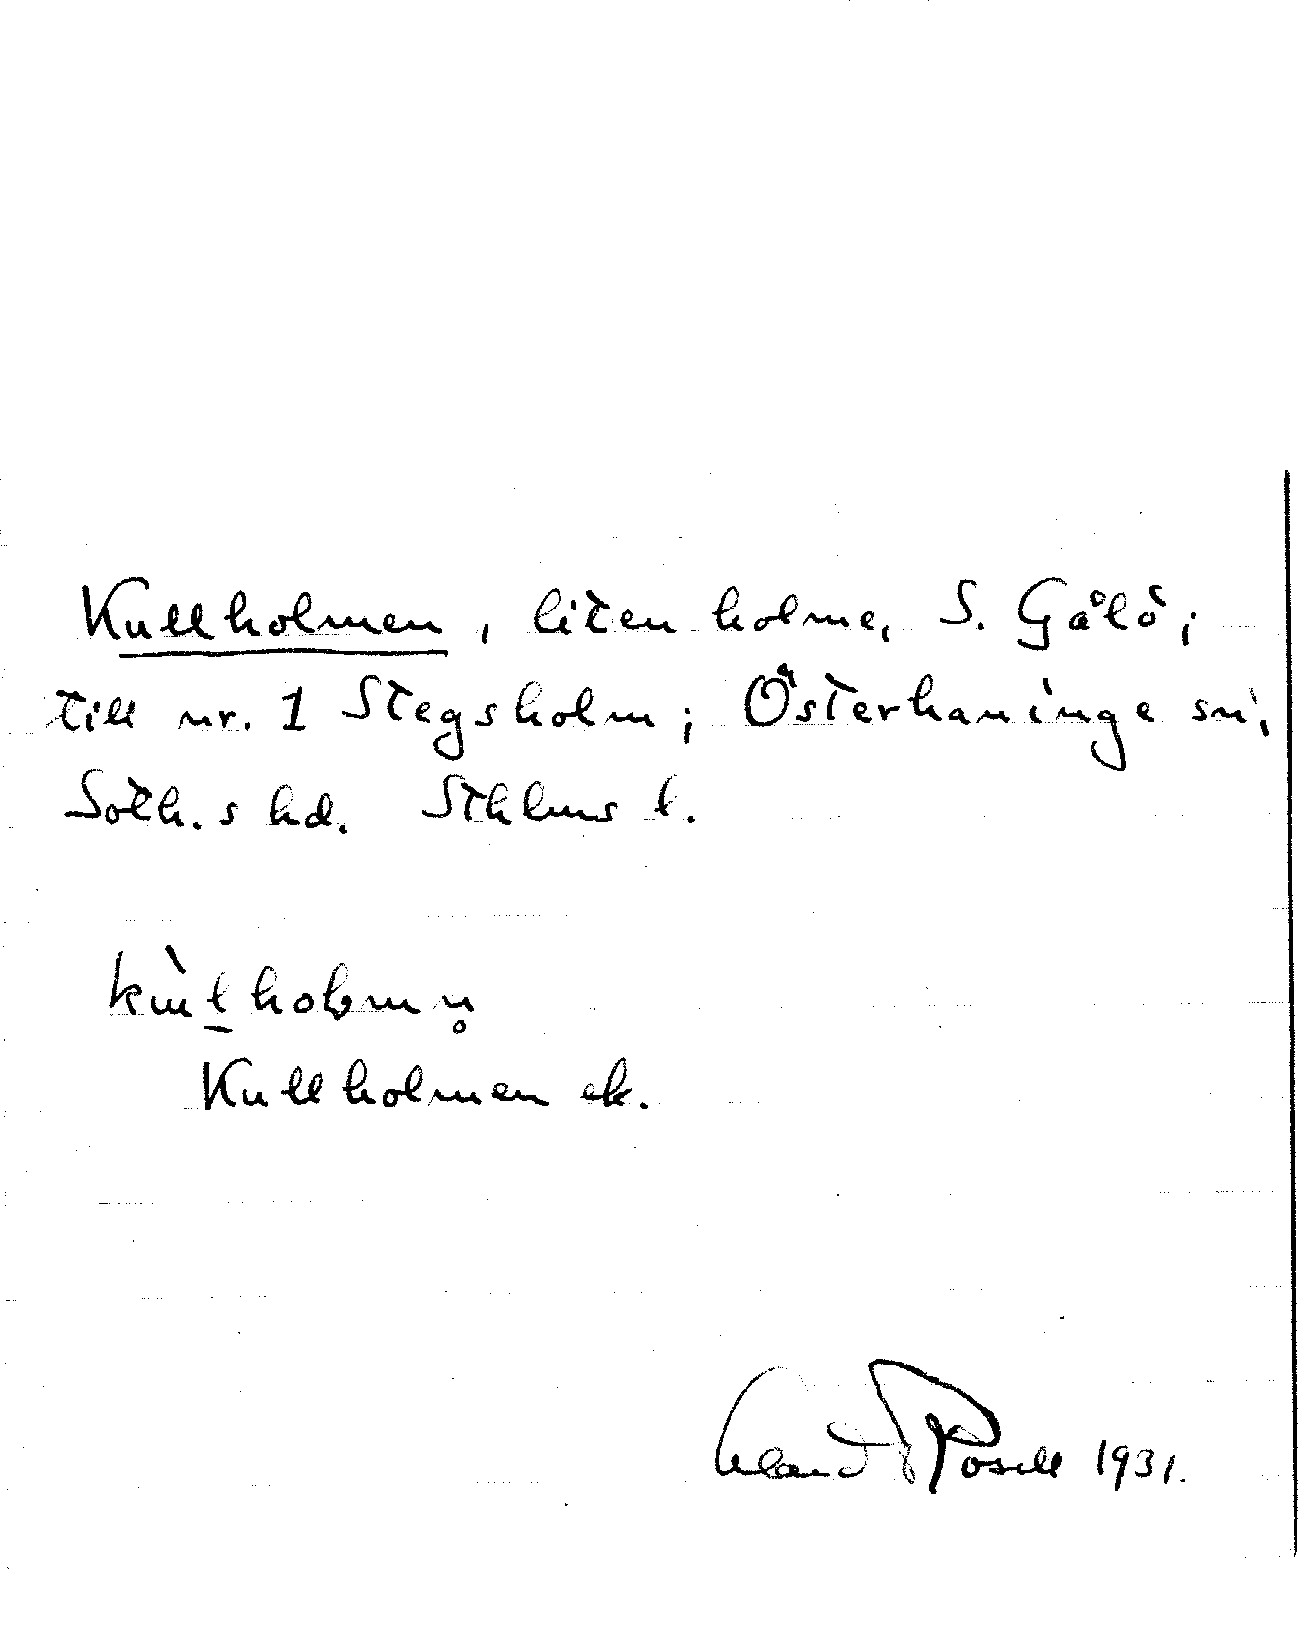 Kullholmen, liten holme, S. Gålö;
till nr. 1 Stegsholm; Österhaninge sn,
Soth.s hd. Sthlms l.
Kullholmen ek.
1931.